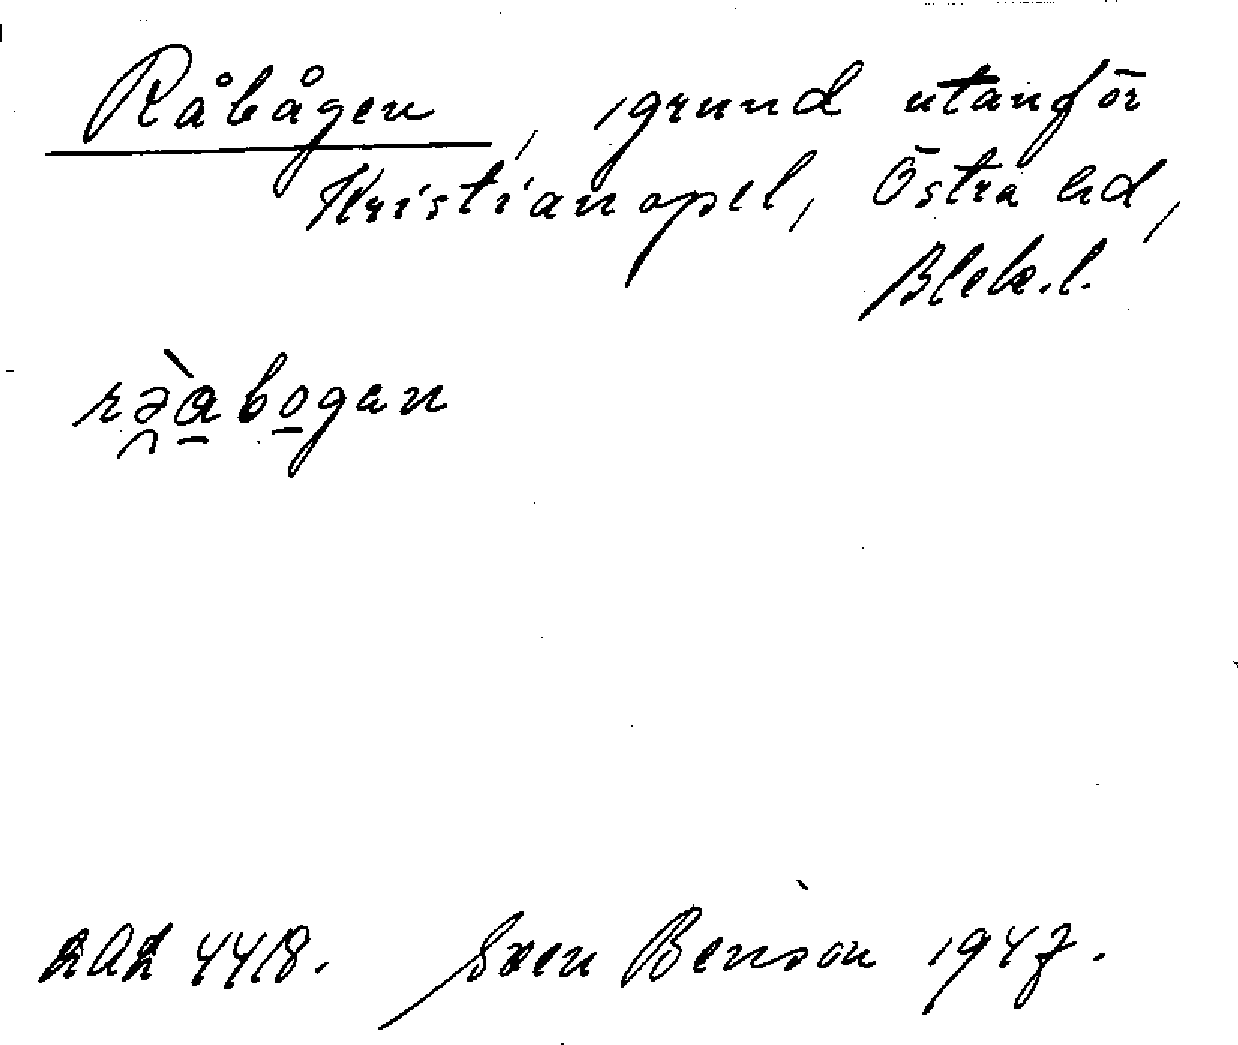 Råbågen, grund utanför
Kristianopel, Östra hd,
Blek.l.
rə̯̀a̠bo̠gan
LAL 4418. Sven Benson 1947.